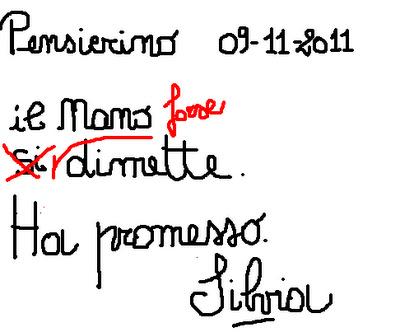 Pensierino 09-11-2011
il Mano forse
si dimette.
Ha promesso.
Silvia